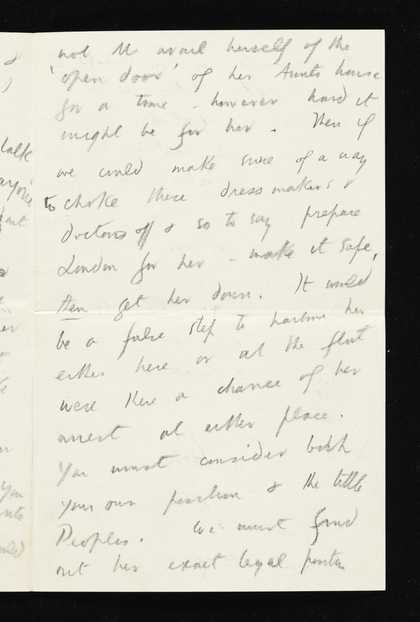 not to avail herself of the
'open door' of her Aunts house
for a time - however hard it
might be for her. Then if
we could make sure of a way
to choke these dressmakers &
doctors off & so to say prepare
London for her - make it safe,
then get her down. It would
be a false step to harbour her
either here or at the flat
were there a chance of her
arrest at either place.
You must consider both
your own position & the little
Peoples. We must find
out her exact legal position
talk